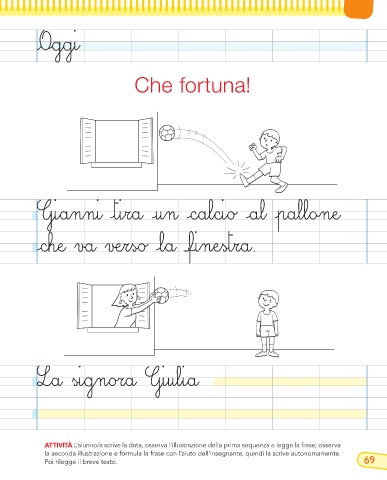 Oggi
Che fortuna!
Gianni tira un calcio al pallone
che va verso la finestra.
La signora Giulia
ATTIVITÀ L'alunno/a scrive la data, osserva l'illustrazione della prima sequenza e legge la frase; osserva
la seconda illustrazione e formula la frase con l'aiuto dell'insegnante, quindi la scrive autonomamente.
Poi rilegge il breve testo.
69